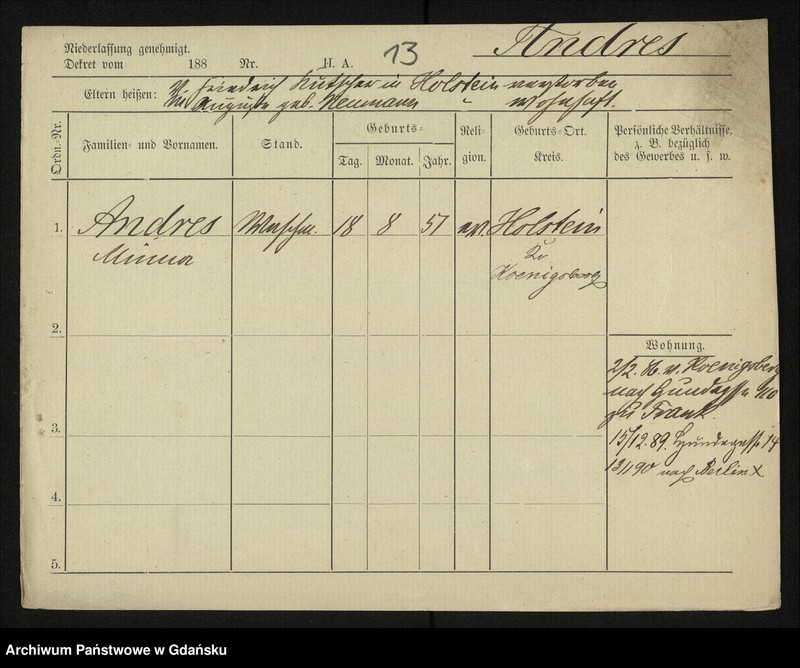 Andres
Niederlassung genehmigt.
Dekret vom 188 Nr. H. A. 13
Eltern heißen: Friedrich Kutscher in Holstein verstorben
Auguste geb. Neumann " wohnhaft.
Ordn.-Nr.
Familien- und Vornamen.
Stand.
Geburts-
Tag. Monat. Jahr.
Religion.
Geburts-Ort.
Kreis.
Persönliche Verhältnisse,
z. B. bezüglich
des Gewerbes u. s. w.
1. Andres 18 8 51 ev. Holstein
Minna Kr.
Koenigsberg
2.
Wohnung.
2/2. 86. v. Koenigsberg
nach Hundegasse
zu Frank.
3.
15/12.89. Hundegasse 14
13/1 90 nach Berlin X
4.
5.
Archiwum Państwowe w Gdańsku